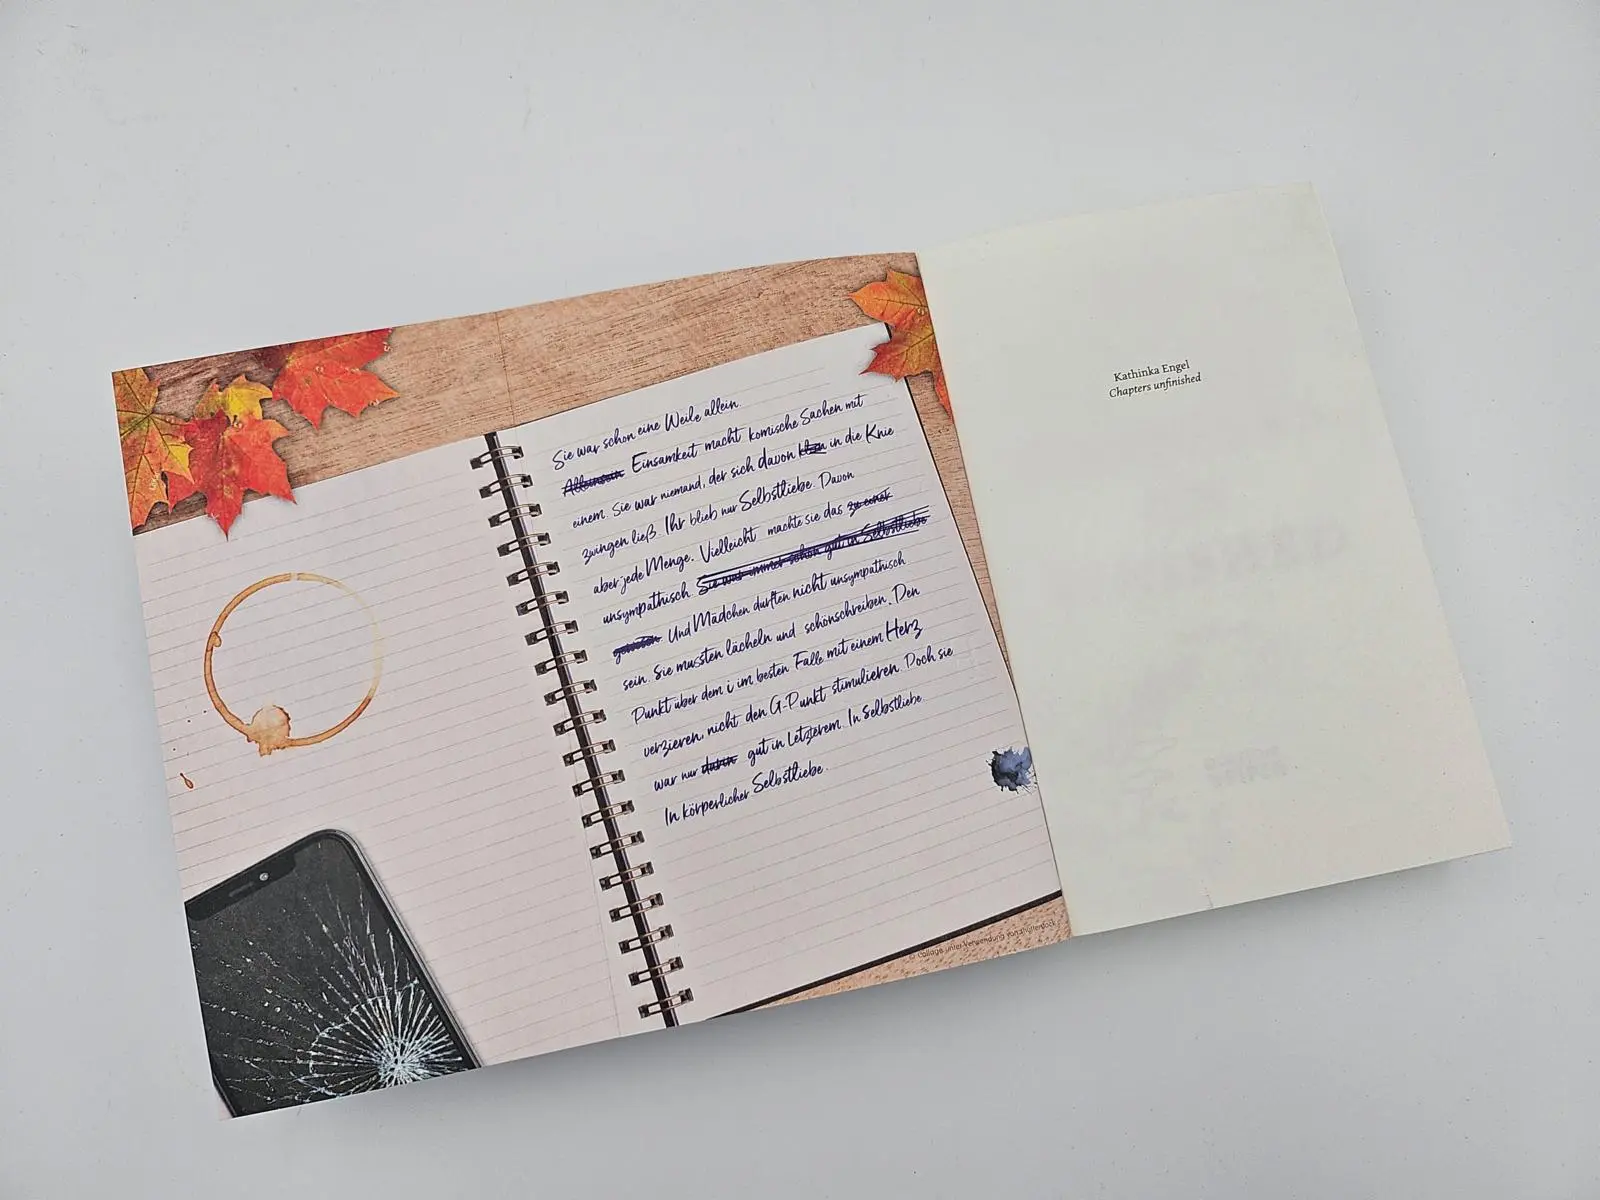 Sie war schon eine Weile allein.
Alleinsein Einsamkeit macht komische Sachen mit
einem. Sie war niemand, der sich davon in die Knie
zwingen ließ. Ihr blieb nur Selbstliebe. Davon
aber jede Menge. Vielleicht machte sie das zu einer
unsympathisch. Sie war immer schon gut in Selbstliebe
gewesen. Und Mädchen durften nicht unsympathisch
sein. Sie mussten lächeln und schönschreiben. Den
Punkt über dem i im besten Falle mit einem Herz
verzieren, nicht den G-Punkt stimulieren. Doch sie
war nur darin gut in Letzterem. In Selbstliebe.
In körperlicher Selbstliebe.
© Collage unter Verwendung von Shutterstock
Kathinka Engel
Chapters unfinished